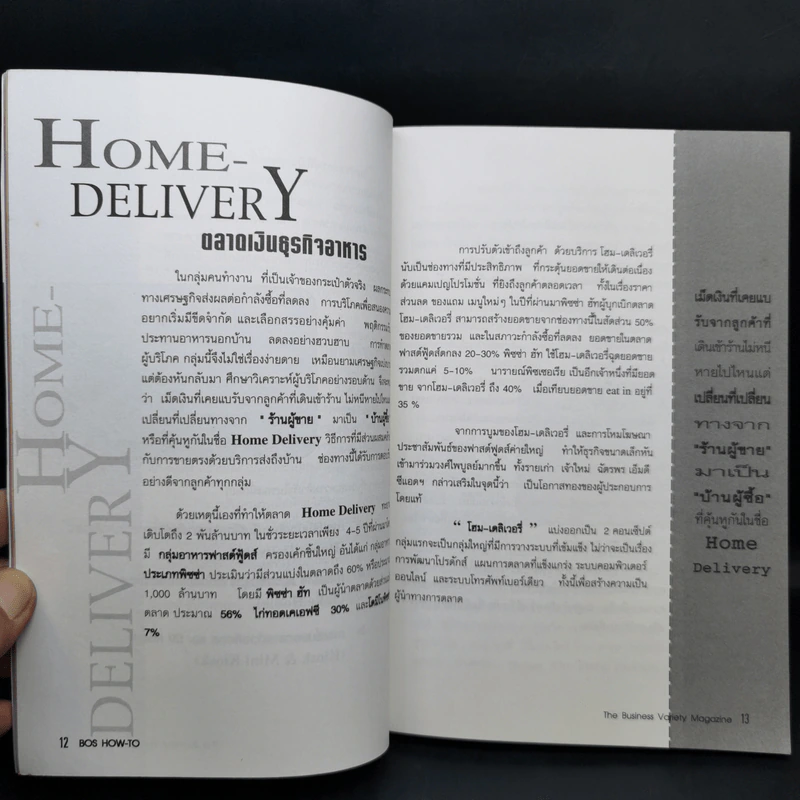 HOME-
DELIVERY
HOME-
DELIVERY
ตลาดเงินธุรกิจอาหาร
ในกลุ่มคนทำงาน ที่เป็นเจ้าของกระเป๋าตัวจริง
ทางเศรษฐกิจส่งผลต่อกำลังซื้อที่ลดลง การบริโภคเพื่อสนองความ
อยากเริ่มมีขีดจำกัด และเลือกสรรอย่างคุ้มค่า
ประทานอาหารนอกบ้าน ลดลงอย่างฮวบฮาบ
ผู้บริโภค กลุ่มนี้จึงไม่ใช่เรื่องง่ายดาย
แต่ต้องหันกลับมา ศึกษาวิเคราะห์ผู้บริโภคอย่างรอบด้าน
ว่า เม็ดเงินที่เคยแบรับจากลูกค้าที่เดินเข้าร้าน ไม่หนีหายไปไหน
เปลี่ยนที่เปลี่ยนทางจาก "ร้านผู้ขาย" มาเป็น "บ้านผู้ซื้อ
หรือที่คุ้นหูกันในชื่อ Home Delivery
กับการขายตรงด้วยบริการส่งถึงบ้าน ช่องทางนี้ได้รับการ
อย่างดีจากลูกค้าทุกกลุ่ม
ด้วยเหตุนี้เองที่ทำให้ตลาด Home Delivery
เติบโตถึง 2 พันล้านบาท ในชั่วระยะเวลาเพียง 4-5 ปีที่ผ่าน
มี กลุ่มอาหารฟาสต์ฟู้ดส์ ครองเค้กชิ้นใหญ่ อันได้แก่
ประเภทพิซซ่า ประเมินว่ามีส่วนแบ่งในตลาดถึง 60%
1,000 ล้านบาท โดยมี พิซซ่า ฮัท เป็นผู้นำตลาดด้วย
ตลาด ประมาณ 56% ไก่ทอดเคเอฟซี 30%
7%
12 BOS HOW-TO
การปรับตัวเข้าถึงลูกค้า ด้วยบริการ โฮม-เดลิเวอรี่
นับเป็นช่องทางที่มีประสิทธิภาพ ที่กระตุ้นยอดขายให้เดินต่อเนื่อง
ด้วยแคมเปญโปรโมชั่น ที่ยิงถึงลูกค้าตลอดเวลา ทั้งในเรื่องราคา
ส่วนลด ของแถม เมนูใหม่ๆ ในปีที่ผ่านมาพิซซ่า ฮัทผู้บุกเบิกตลาด
โฮม-เดลิเวอรี่ สามารถสร้างยอดขายจากช่องทางนี้ในสัดส่วน 50%
ของยอดขายรวม และในสภาวะกำลังซื้อที่ลดลง ยอดขายในตลาด
ฟาสต์ฟู้ดส์ตกลง 20-30% พิซซ่า ฮัท ใช้โฮม-เดลิเวอรี่ฉุดยอดขาย
รวมตกแค่ 5-10% นารายณ์พิซเซอเรีย เป็นอีกเจ้าหนึ่งที่มียอด
ขาย จากโฮม-เดลิเวอรี่ ถึง 40% เมื่อเทียบยอดขาย eat in อยู่ที่
35 %
จากการบูมของโฮม-เดลิเวอรี่ และการโหมโฆษณา
ประชาสัมพันธ์ของฟาสต์ฟูดส์ค่ายใหญ่ ทำให้ธุรกิจขนาดเล็กหัน
เข้ามาร่วมวงศ์ไพบูลย์มากขึ้น ทั้งรายเก่า เจ้าใหม่ ฉัตรพร เอ็มดี
ซีแอดฯ กล่าวเสริมในจุดนี้ว่า เป็นโอกาสทองของผู้ประกอบการ
โดยแท้
" โฮม-เดลิเวอรี่ " แบ่งออกเป็น 2 คอนเซ็ปต์
กลุ่มแรกจะเป็นกลุ่มใหญ่ที่มีการวางระบบที่เข้มแข็ง ไม่ว่าจะเป็นเรื่อง
การพัฒนาโปรดักส์ แผนการตลาดที่แข็งแกร่ง ระบบคอมพิวเตอร์
ออนไลน์ และระบบโทรศัพท์เบอร์เดียว ทั้งนี้เพื่อสร้างความเป็น
ผู้นำทางการตลาด
เม็ดเงินที่เคยแบ
รับจากลูกค้าที่
เดินเข้าร้านไม่หนี
หายไปไหนแต่
เปลี่ยนที่เปลี่ยน
ทางจาก
"ร้านผู้ขาย"
มาเป็น
"บ้านผู้ซื้อ"
ที่คุ้นหูกันในชื่อ
Home
Delivery
The Business Variety Magazine 13